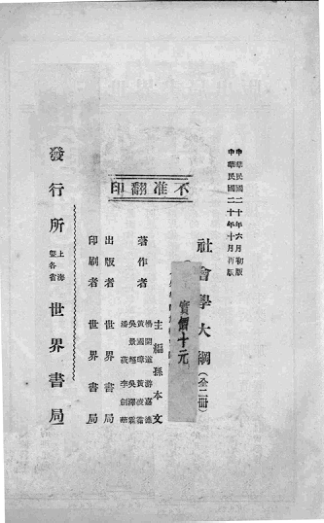 中華民國二十年六月初版
中華民國二十年十月再版
不准翻印
社會學大綱(全二冊)
實價十元
主編孫本文
著作者
楊開道 游嘉德
黃國璋 黃凌霜
吳景超 吳澤霖
潘菽 李劍華
出版者 世界書局
印刷者 世界書局
發行所 上海暨各省 世界書局